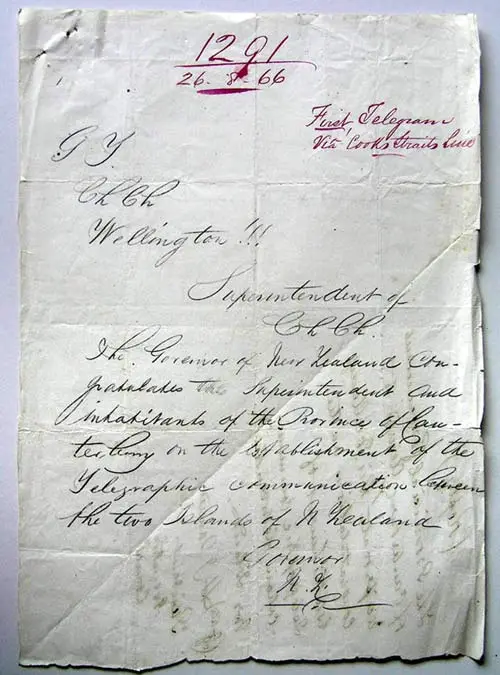 1291
26-8-66
First Telegram
Via Cooks Straits Line
G Y.
Ch Ch
Wellington !!!
Superintendent of
Ch Ch.
The Governor of New Zealand Con-
gratulates the Superintendent and
inhabitants of the Province of Can-
terbury on the establishment of the
Telegraphic communication between
the two Islands of N Zealand
Governor
N. Z.